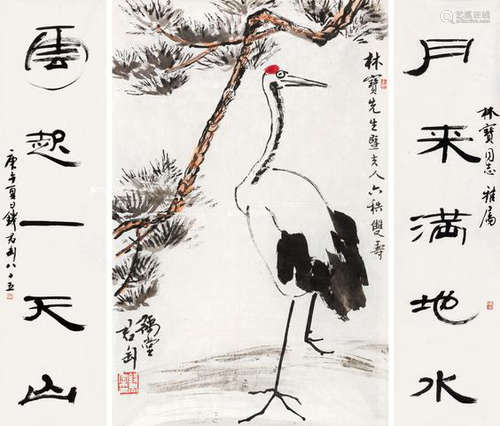 月来滿地水
林寶同志 雅屬
林寶先生暨夫人六秩雙壽
豫堂
君匋
雲起一天山
庚午夏日錢君匋八十五